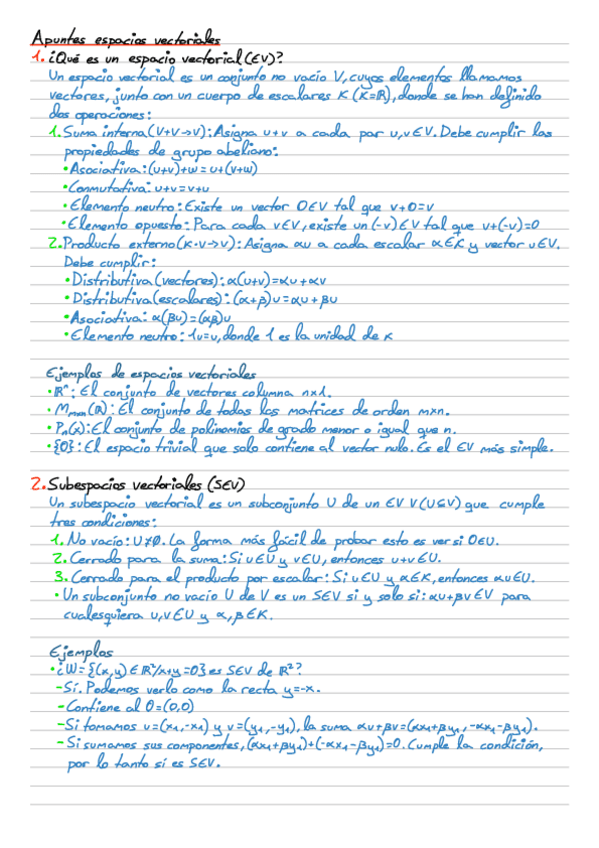 Apuntes espacios vectoriales
1. ¿Qué es un espacio vectorial (EV)?
Un espacio vectorial es un conjunto no vacío V, cuyos elementos llamamos
vectores, junto con un cuerpo de escalares K (K=ℝ), donde se han definido
dos operaciones:
1. Suma interna (V+V→V): Asigna u+v a cada par u,v∈V. Debe cumplir las
propiedades de grupo abeliano:
• Asociativa: (u+v)+w=u+(v+w)
• Conmutativa: u+v=v+u
• Elemento neutro: Existe un vector 0∈V tal que v+0=v
• Elemento opuesto: Para cada v∈V, existe un (-v)∈V tal que v+(-v)=0
2. Producto externo (K·V→V): Asigna αu a cada escalar α∈K y vector u∈V.
Debe cumplir:
• Distributiva (vectores): α(u+v)=αu+αv
• Distributiva (escalares): (α+β)u=αu+βu
• Asociativa: α(βu)=(αβ)u
• Elemento neutro: 1u=u, donde 1 es la unidad de K
Ejemplos de espacios vectoriales
• ℝⁿ: El conjunto de vectores columna nx1.
• Mmxn(ℝ): El conjunto de todas las matrices de orden mxn.
• Pn(x): El conjunto de polinomios de grado menor o igual que n.
• {0}: El espacio trivial que solo contiene al vector nulo. Es el EV más simple.
2. Subespacios vectoriales (SEV)
Un subespacio vectorial es un subconjunto U de un EV V (U⊆V) que cumple
tres condiciones:
1. No vacío: U≠∅. La forma más fácil de probar esto es ver si 0∈U.
2. Cerrado para la suma: Si u∈U y v∈U, entonces u+v∈U.
3. Cerrado para el producto por escalar: Si u∈U y α∈K, entonces αu∈U.
• Un subconjunto no vacío U de V es un SEV si y solo si: αu+βv∈V para
cualesquiera u,v∈U y α,β∈K.
Ejemplos
• ¿W={(x,y)∈ℝ²/x+y=0} es SEV de ℝ²?
- Sí. Podemos verlo como la recta y=-x.
- Contiene al 0=(0,0)
- Si tomamos u=(x₁,-x₁) y v=(y₁,-y₁), la suma αu+βv=(αx₁+βy₁, -αx₁-βy₁).
- Si sumamos sus componentes, (αx₁+βy₁)+(-αx₁-βy₁)=0. Cumple la condición,
por lo tanto sí es SEV.